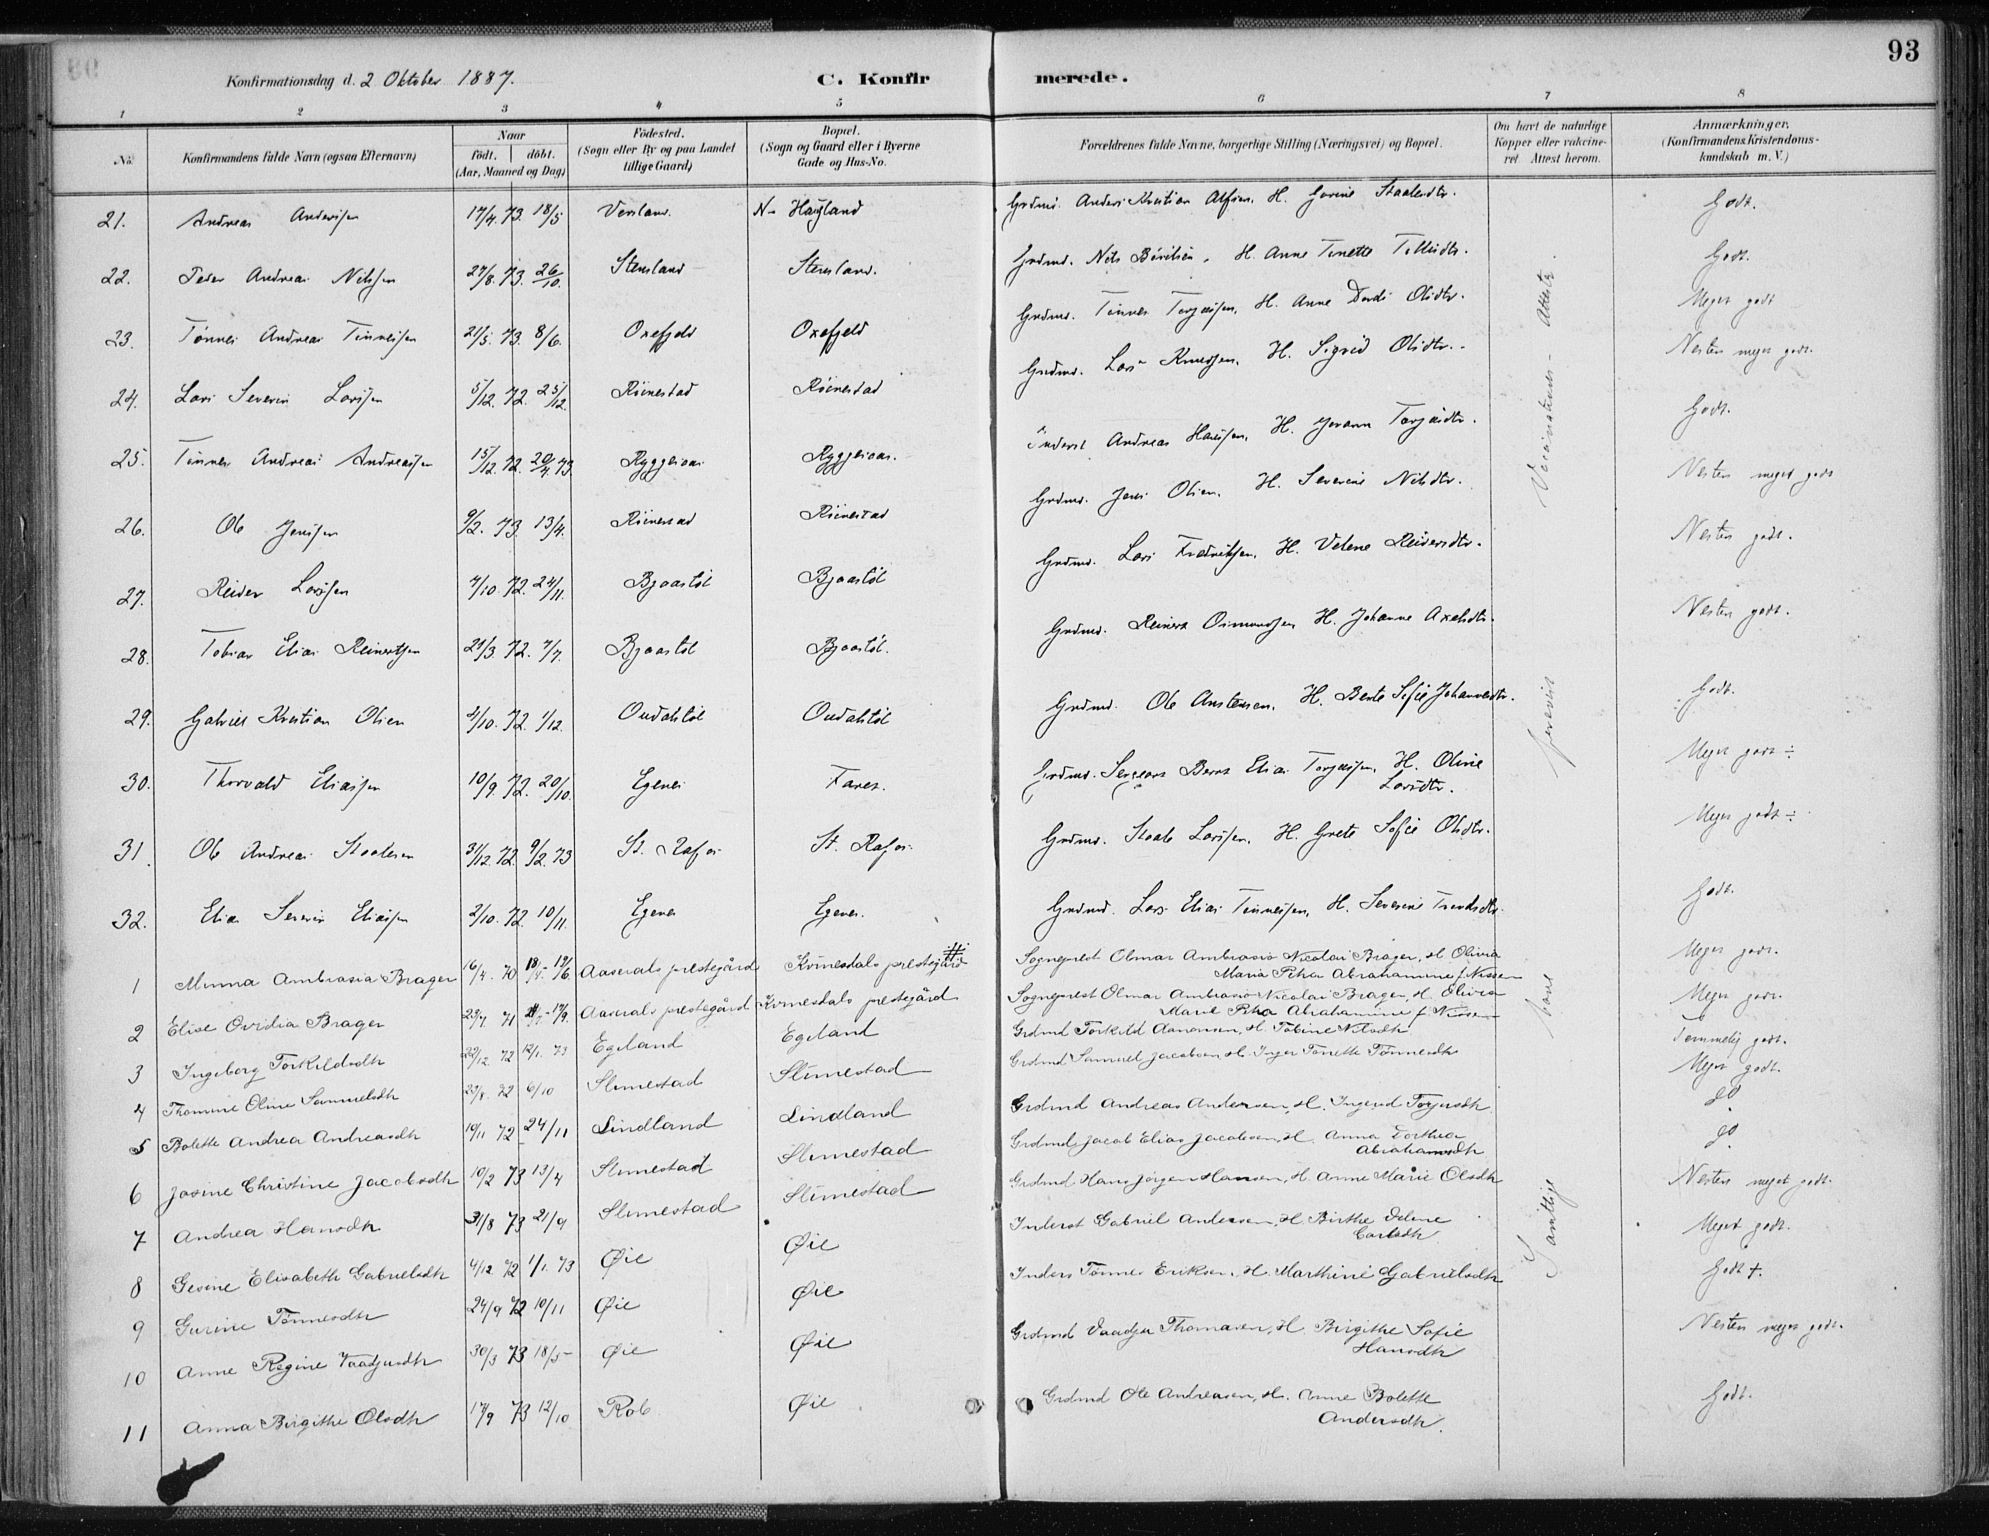 93
Konfirmationsdag d. 2 Oktober 1887.
C. Konfir merede.
1 2 3 4 5 6 7 8
No.
Konfirmandens fulde Navn (ogsaa Efternavn)
Naar
födt. | döbt.
(Aar, Maaned og Dag)
Födested.
(Sogn eller By og paa Landet
tillige Gaard)
Bopæl.
(Sogn og Gaard eller i Byerne
Gade og Hus-No.
Forældrenes fulde Navne, borgerlige Stilling (Næringsvei) og Bopæl.
Om havt de naturlige
Kopper eller vakcine-
ret. Attest herom.
Anmærkninger.
(Konfirmandens Kristendoms-
kundskab m. V.)
21. Andreas Andersen 17/4 73. 18/5 N. Haugland Grdmd. Anders Kristian H. Staalesdtr. Godt.
22. Peder Andreas Nilssen 27/8. 73. 26/10. Stensland Stensland. Grdmd. Nils H. Anne Tonette Godt.
23. Tønnes Andreas Tønnessen 21/5. 73. 8/6. Oxefjeld Oxefjeld Grdmd. Tønnes Torjussen, H. Anne Olsdtr. Meget godt
24. Lars Severin Larssen 5/12. 72. 25/12. Röinestad Röinestad Grdmd. Lars Knudsen, H. Sigrid Olsdtr. Nesten meget godt.
25. Tönnes Andreas Andreassen 15/12. 72. 20/4. 73. Inderst Andreas Hansen, H. Torjusdtr. Godt.
26. Ole Jenssen 9/2. 73. 13/4. Röinestad Röinestad Grdmd. Jens Olsen. H. Severine Nilsdtr. Nesten meget godt
27. Reider Larssen 7/10. 72. 24/11. Bjaastöl Bjaastöl Grdmd. Lars Fredriksen, H. Velene Reidersdtr. Nesten godt.
28. Tobias Elias Reinertsen 21/3. 72. 7/7. Bjaastöl Bjaastöl. Grdmd. Reinert Osmundsen H. Johanne Axelsdtr. Nesten godt.
29. Gabriel Kristian Olsen 4/10. 72. 1/12. Oudalstöl Oudalstöl Grdmd. Ole Anstensen. H. Berte Sofie Johannesdtr. Godt.
30. Thorvald Eliassen 10/9. 72. 20/10. Egenes Faret. Grdmd. Sergeant Bernt Elias Torjussen, H. Oline
Larsdtr. Meget godt ÷
31. Ole Andreas Staalesen 31/12. 72. 9/2. 73 St. Rafos St. Rafos. Grdmd. Staale Larssen, H. Grete Sofie Olsdtr. Meget godt ÷
32. Elias Severin Eliassen 2/10. 72 10/11. Egenes Egenes. Grdmd. Lars Elias Tönnessen, H. Severine Godt.
1 Minna Ambrosia Brager 16/4. 70 18/4. 19/6. Aaserals prestegård Kvinesdals prestegård Sogneprest Olmar Ambrosio Nicolai Brager, H Olivia
Maria Petra Abrahamine f. Nissen Meget godt.
2 Elise Ovidia Brager 23/7 71 17/9. Aaserals prestegård Kvinesdals prestegård Sogneprest Olmar Ambrosio Nicolai Brager, H. Olivia
Marie Petra Abrahamine f. Nissen Meget godt.
3 Ingeborg Torkildsdtr 22/12 72 12/1. 73 Egeland Egeland Grdmd Torkild Aanensen, H. Tobine Nilsdtr. Temmelig godt.
4 Thomine Oline Samuelsdtr 23/8. 72 6/10 Slimestad Slimestad Grdmd Samuel Jacobsen, H. Inger Tonette Tønnesdtr Meget godt.
5 Bolette Andrea Andreasdtr 19/11 72 24/11 Lindland Lindland Grdmd Andreas Andersen, H. Ingerid Torjusdtr do
6 Josine Christine Jacobsdtr 10/2 73 13/4 Slimestad Slimestad Grdmd Jacob Elias Jacobsen, H. Anna Dorthea
Abrahamsdtr do
7 Andrea Hansdtr 31/8 73 21/9 Slimestad Slimestad Grdmd Hans Jörgen Hansen, H. Anne Marie Olsdtr Nesten meget godt.
8 Gesine Elisabeth Gabrielsdtr 4/12 72 1/1. 73 Øie Øie Inderst Gabriel Andersen, H. Birthe Velene
Carlsdtr Meget godt.
9 Gurine Tønnesdtr 24/9 72 10/11 Øie Øie Inderst Tønnes Eriksen, H. Marthine Gabrielsdtr Godt +.
10 Anne Regine Vaadjusdtr 30/3 73 18/5 Øie Øie Grdmd Vaadju Thomasen, H. Birgithe Sofie
Hansdtr Nesten meget godt.
11 Anna Birgithe Olsdtr 17/9 73 12/10 Rob Øie Grdmd Ole Andreasen, H. Anne Bolette
Andersdtr. Godt.
Samtlige have foreviist Vaccinations-Attester.